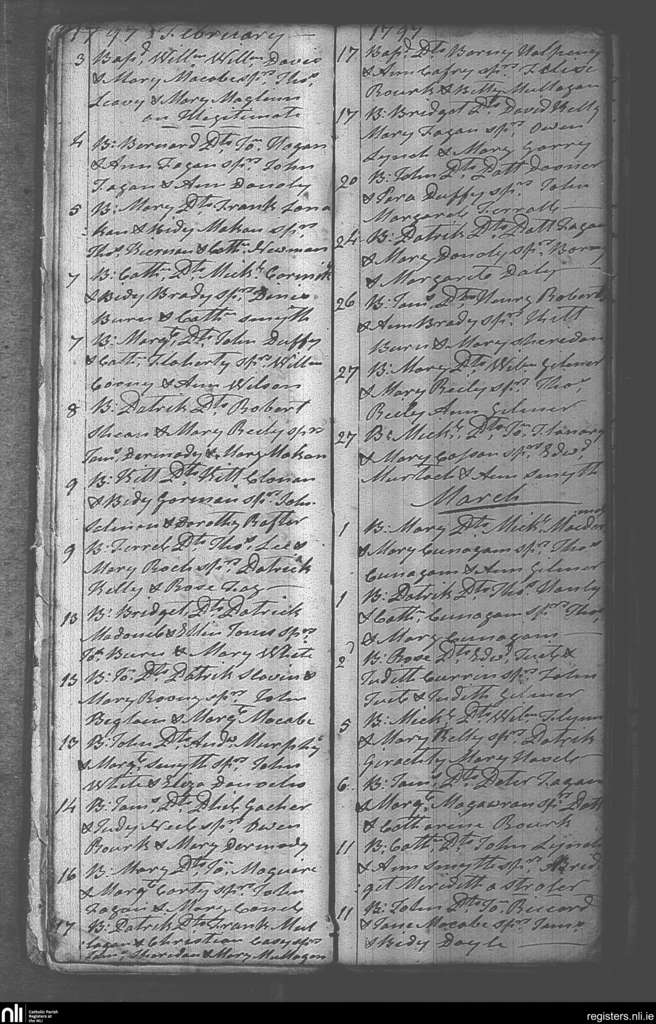 1797 February
3 Bapd. Willm. Willm. Davis
& Mary Macabe sprs. Thos.
Leavy & Mary Maglenn
an Illegitimate
4 B: Bernard Dto. Jo. Fagan
& Ann Fagan sprs. John
Fagan & Ann Donoly
5 B: Mary Dto. Frank Lona
& Bidy Mahan sprs.
Thos. Kiernan & Cath. Newman
7 B. Cath. Dto. Mickl. Cormick
& Bidy Brady sprs. Denis
Burns & Cath. Smyth
7 B: Margt. Dto. John Duffy
& Cath. Flaherty sprs. Willm
Corny & Ann Wilson
8 B. Patrick Dto. Robert
Shean & Mary Reily sprs
Jams. Dermody & Mary Mahan
9 B: Kitt Dto. Kitt Clonan
& Bidy Gorman sprs. John
& Dorothy Rafter
9 B: Terrel Dto. Thos. Lee &
Mary Roch sprs. Patrick
Kelly & Rose Fag
13 B: Bridget Dto. Patrick
& Ellin Jones sprs.
Jo. Burns & Mary White
13 B: Jo. Dto. Patrick Slevin &
Mary Rooney sprs. John
Beglan & Margt. Macabe
13 B: John Dto. Andw. Murphy
& Margt. Smyth sprs. John
White & Eliza
14 B: Jams. Dto. Phil. Gaher
& Judy sprs. Owen
Rourk & Mary Dermody
16 B: Mary Dto. Jo. Maguire
& Margt. Corty sprs. John
Fagan & Mary
17 B: Patrick Dto. Frank Mul
& Christian Casy sprs
Jams. Sheridan & Mary Mullagan
1797
17 Bapd. Dto. Barny Halpeny
& Ann Cafry sprs.
Rourk & Kitty Mullagan
17 B: Bridget Dto. David Kelly
Mary Fagan sprs. Owen
Lynch & Mary Gorry
20 B: John Dto. Patt Dooner
& Sera Duffy sprs. John
Margaret
24 B: Patrick Dto. Patt Fagan
& Mary Donoly sprs. Barny
& Margaret Daly
26 B: Jams. Dto. Henry Roberts
& Ann Brady sprs. Kitt
Burn & Mary Sheredan
27 B: Mary Dto. Wilm. Gilmer
& Mary Reily sprs. Thos.
Reily Ann Gilmer
27 B: Mickl. Dto. Jo. Flanagan
& Mary sprs. Edwd.
Murtoch & Ann Smyth
March
1 B: Mary Dto. Mickl.
& Mary Cunagam sprs. Thos
Cunagam & Ann Gilmer
1 B: Patrick Dto. Thos. Hanly
& Cath. Cunagan sprs. Thos.
& Mary Cunagam
2 B: Rose Dto. Edwd. Tuit &
Judith Curren sprs. John
Tuit & Judith Gilmer
5 B: Mickl. Dto. Wilm. Flynn
& Mary Kelly sprs. Patrick
Geraghty Mary
6 B: Jams. Dto. Peter Fagan
& Margt. Magawran sprs. Patt
& Catharine Rourk
11 B: Cath. Dto. John Lynch
& Ann Smyth sprs. Brid
get Meredith a stroler
11 B: John Dto. Jo. Ricard
& Jane Macabe sprs. Jams.
& Bidy Doyle
nli Catholic Parish
Registers at
the NLI
registers.nli.ie